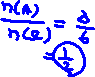 n(A)/n(Ω) = 3/6
= 1/2